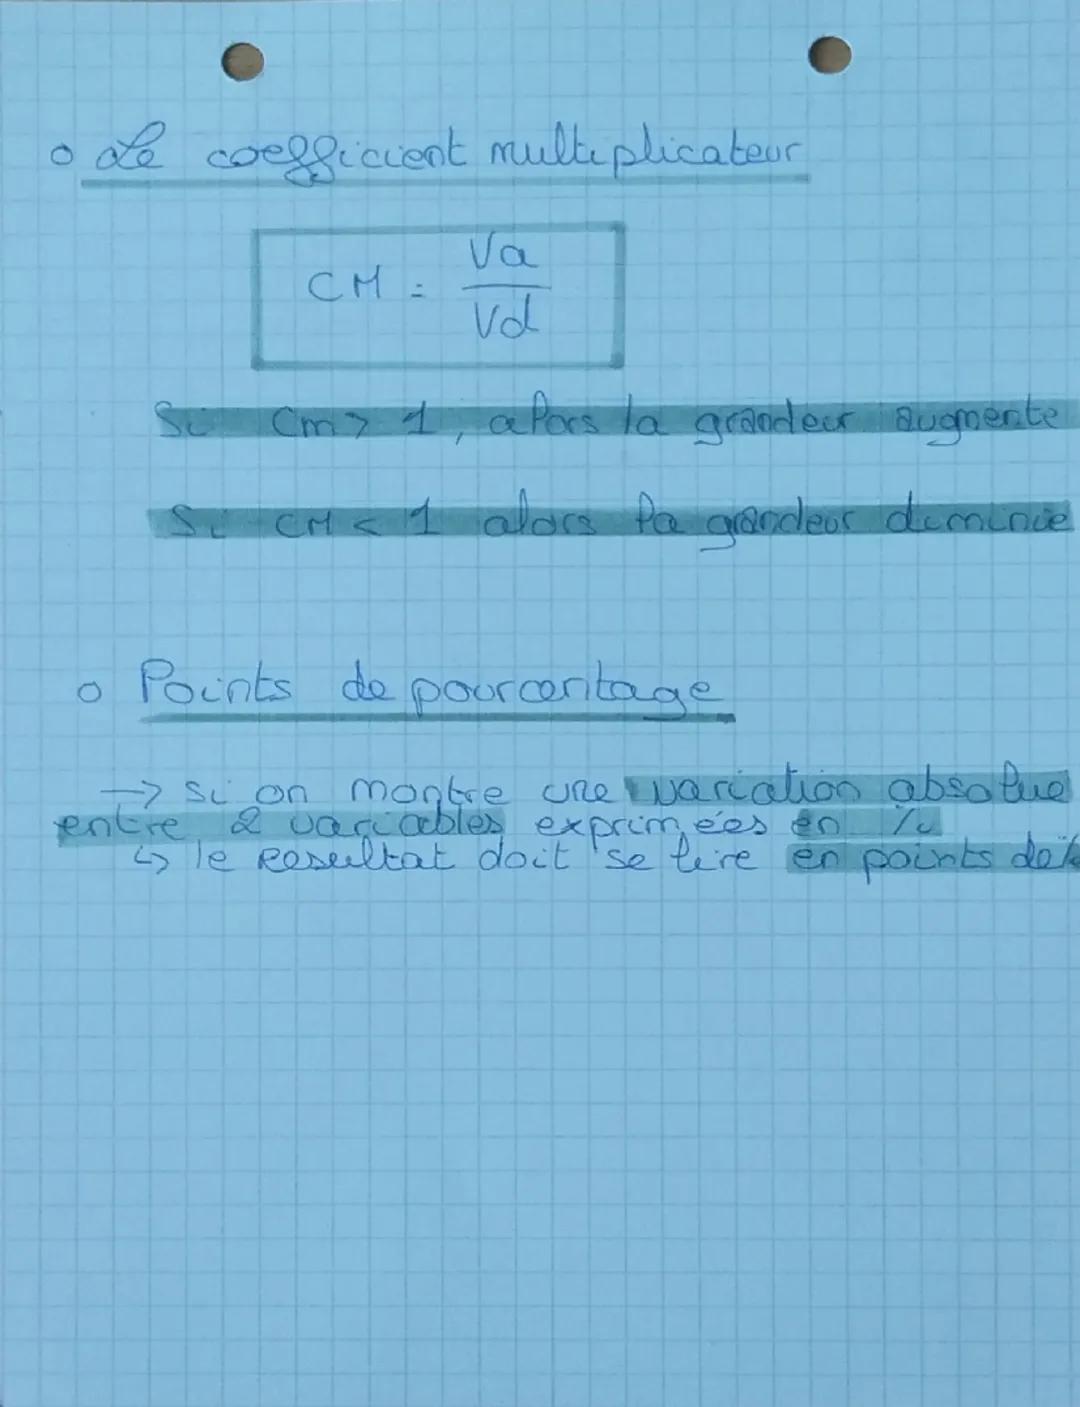 Le coefficient multiplicateur
CM = Va / Vd
Si Cm > 1, alors la grandeur augmente
Si CM < 1 alors la grandeur diminue
Points de pourcentage
→ si on montre une variation absolue
entre 2 variables exprimées en %
↳ le resultat doit se lire en points de %